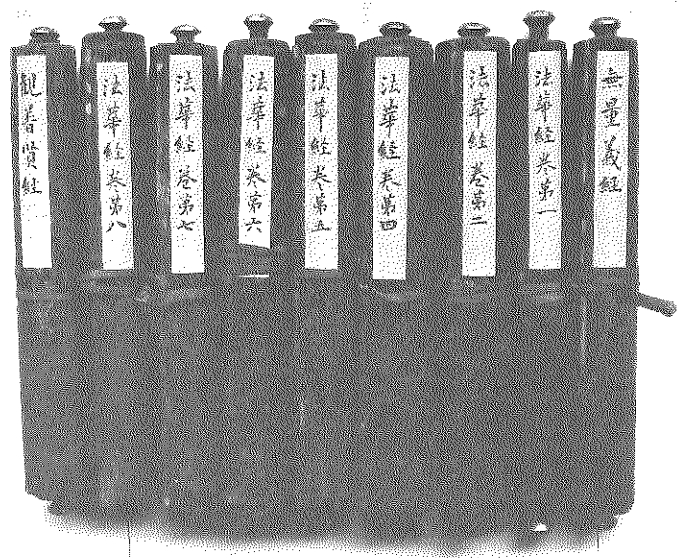 無量義経
法華経巻第一
法華経巻第二
法華経巻第四
法華経巻第五
法華経巻第六
法華経巻第七
法華経巻第八
観普賢経